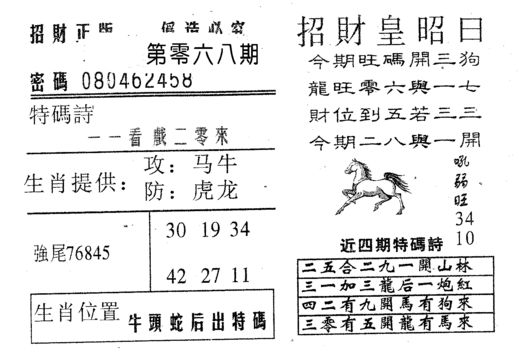 招財正版 偽造必究
第零六八期
密碼 080462458
特碼詩
一一看戲二零來
生肖提供:
攻: 马牛
防: 虎龙
強尾76845
30 19 34
42 27 11
生肖位置 牛頭蛇后出特碼
招財皇昭曰
今期旺碼開三狗
龍旺零六與一七
財位到五若三三
今期二八與一開
吼
弱
旺
34
10
近四期特碼詩
二五合二九一開山林
三一加三龍后一炮紅
四二有九開馬有狗來
三零有五開龍有馬來